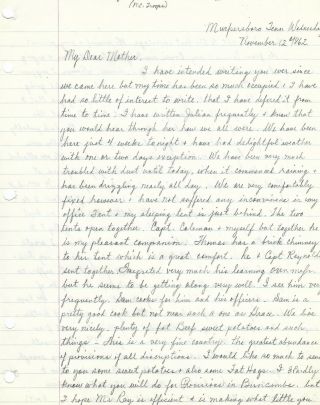 Murfersboro Tenn Wednesday
November 12th 1862
My Dear Mother.
I have intended writing you ever since
we came here but my time has been so much occupied & I have
had so little of interest to write that I have defered it from
time to time. I have written Julian frequently & know that
you would hear through her how we all were. We have been
here just 4 weeks to night & have had delightful weather
with one or two days exception. We have been very much
troubled with dust until today, when it commenced raining &
has been drizzling nearly all day. We are very comfortably
fixed however & have not suffered any inconvenience in my
office Tent & my sleeping tent is just behind. The two
tents open together. Capt. Coleman & myself but together he
is my pleasant companion. Thomas has a brick chimney
to his tent which is a great comfort. he & Capt Reynolds
sent together I regretted very much his leaving our mess
but he seems to be getting along very well. I see him very
frequently. Sam cooks for him and his officers. Sam is a
pretty good cook but not near such a one as Grace. We live
very nicely. plenty of fat Beef sweet potatoes and such
things - this is a very fine country. the greatest abundance
of provisions of all discriptions. I would like so much to send
to you some sweet potatoes & also some Fat Hogs. I hardly
know what you will do for Provisions in Buncombe. but
I hope Mr Roy is efficient & is making what little you